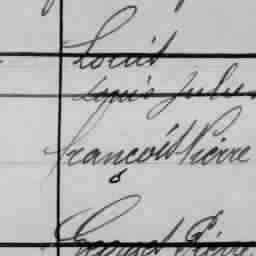 Louis
Louis Jules
François Pierre
Pierre